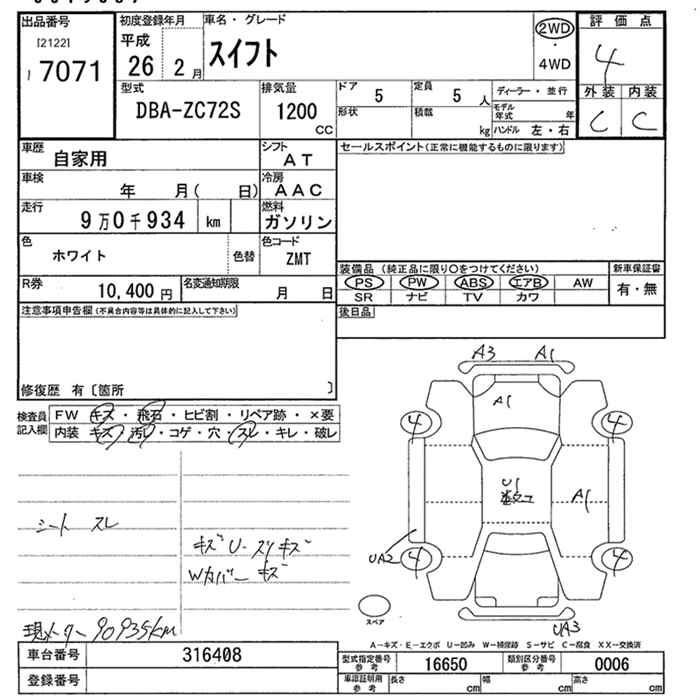 出品番号
[2122]
7071
初度登録年月
平成
26 2月
車名・グレード
スイフト
2WD
・
4WD
評価点
4
外装 内装
C C
型式
DBA-ZC72S
排気量
1200
CC
ドア 5
定員 5 人
形状
積載 kg
ディーラー・並行
モデル年式 年
ハンドル 左・右
車歴
自家用
シフト
AT
車検
年 月( 日)
冷房
AAC
走行
9万0千934 km
燃料
ガソリン
色
ホワイト
色替
色コード
ZMT
R券
10,400 円
名変通知期限
月 日
セールスポイント(正常に機能するものに限ります)
装備品(純正品に限り○をつけてください)
PS PW ABS エアB AW
SR ナビ TV カワ
新車保証書
有・無
後日品
注意事項申告欄(不具合内容等は具体的に記入して下さい)
修復歴 有〔箇所 〕
検査員記入欄
FW キズ・飛石・ヒビ割・リペア跡・×要
内装 キズ・汚れ・コゲ・穴・スレ・キレ・破レ
シート スレ
キズU-スリキズ
Wカバー キズ
現メーター 90935km
A3 A1
A1
4 4
U1
A1
UA2
4 4
UA3
スペア
A-キズ・E-エクボ U-凹み W-補修跡 S-サビ C-腐食 XX-交換済
車台番号 316408
登録番号
型式指定番号 参考 16650
類別区分番号 参考 0006
車庫証明用 参考
長さ cm
幅 cm
高さ cm